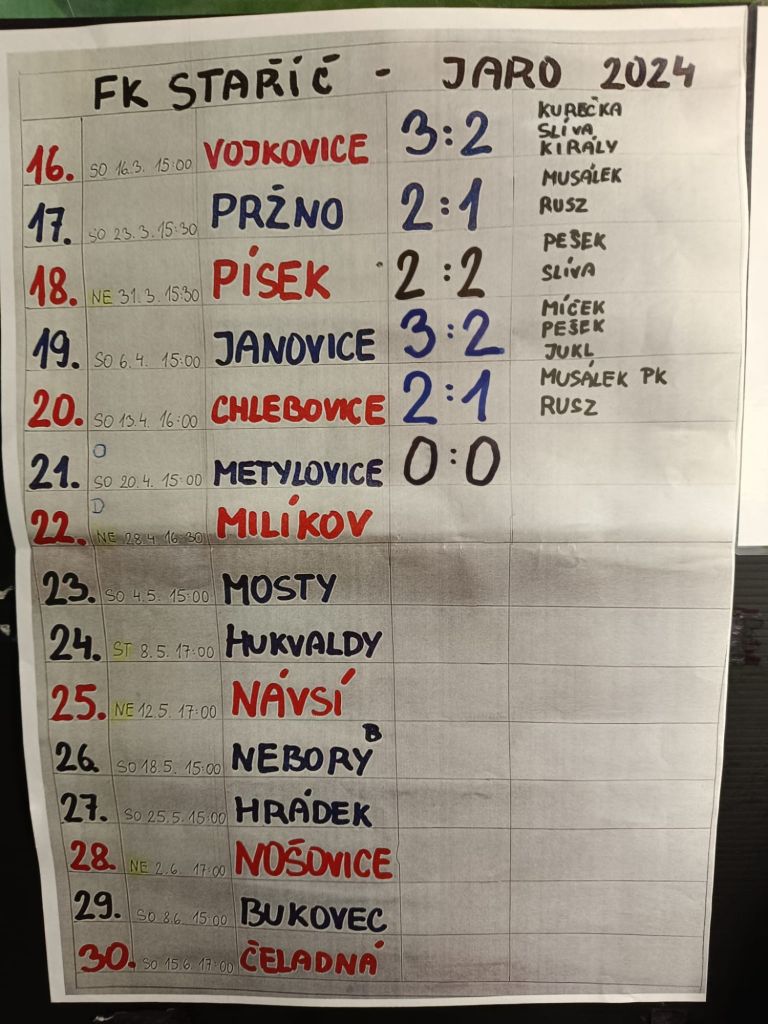 FK STAŘÍČ - JARO 2024
16. SO 16.3. 15:00 VOJKOVICE 3:2 KUREČKA
SLÍVA
KIRÁLY
17. SO 23.3. 15:30 PRŽNO 2:1 MUSÁLEK
RUSZ
18. NE 31.3. 15:30 PÍSEK 2:2 PEŠEK
SLÍVA
19. SO 6.4. 15:00 JANOVICE 3:2 MÍČEK
PEŠEK
JUKL
20. SO 13.4. 16:00 CHLEBOVICE 2:1 MUSÁLEK PK
RUSZ
O
21. SO 20.4. 15:00 METYLOVICE 0:0
D
22. NE 28.4 16:30 MILÍKOV
23. SO 4.5. 15:00 MOSTY
24. ST 8.5. 17:00 HUKVALDY
25. NE 12.5. 17:00 NÁVSÍ
26. SO 18.5. 15:00 NEBORY B
27. SO 25.5. 15:00 HRÁDEK
28. NE 2.6. 17:00 NOŠOVICE
29. SO 8.6. 15:00 BUKOVEC
30. SO 15.6. 17:00 ČELADNÁ